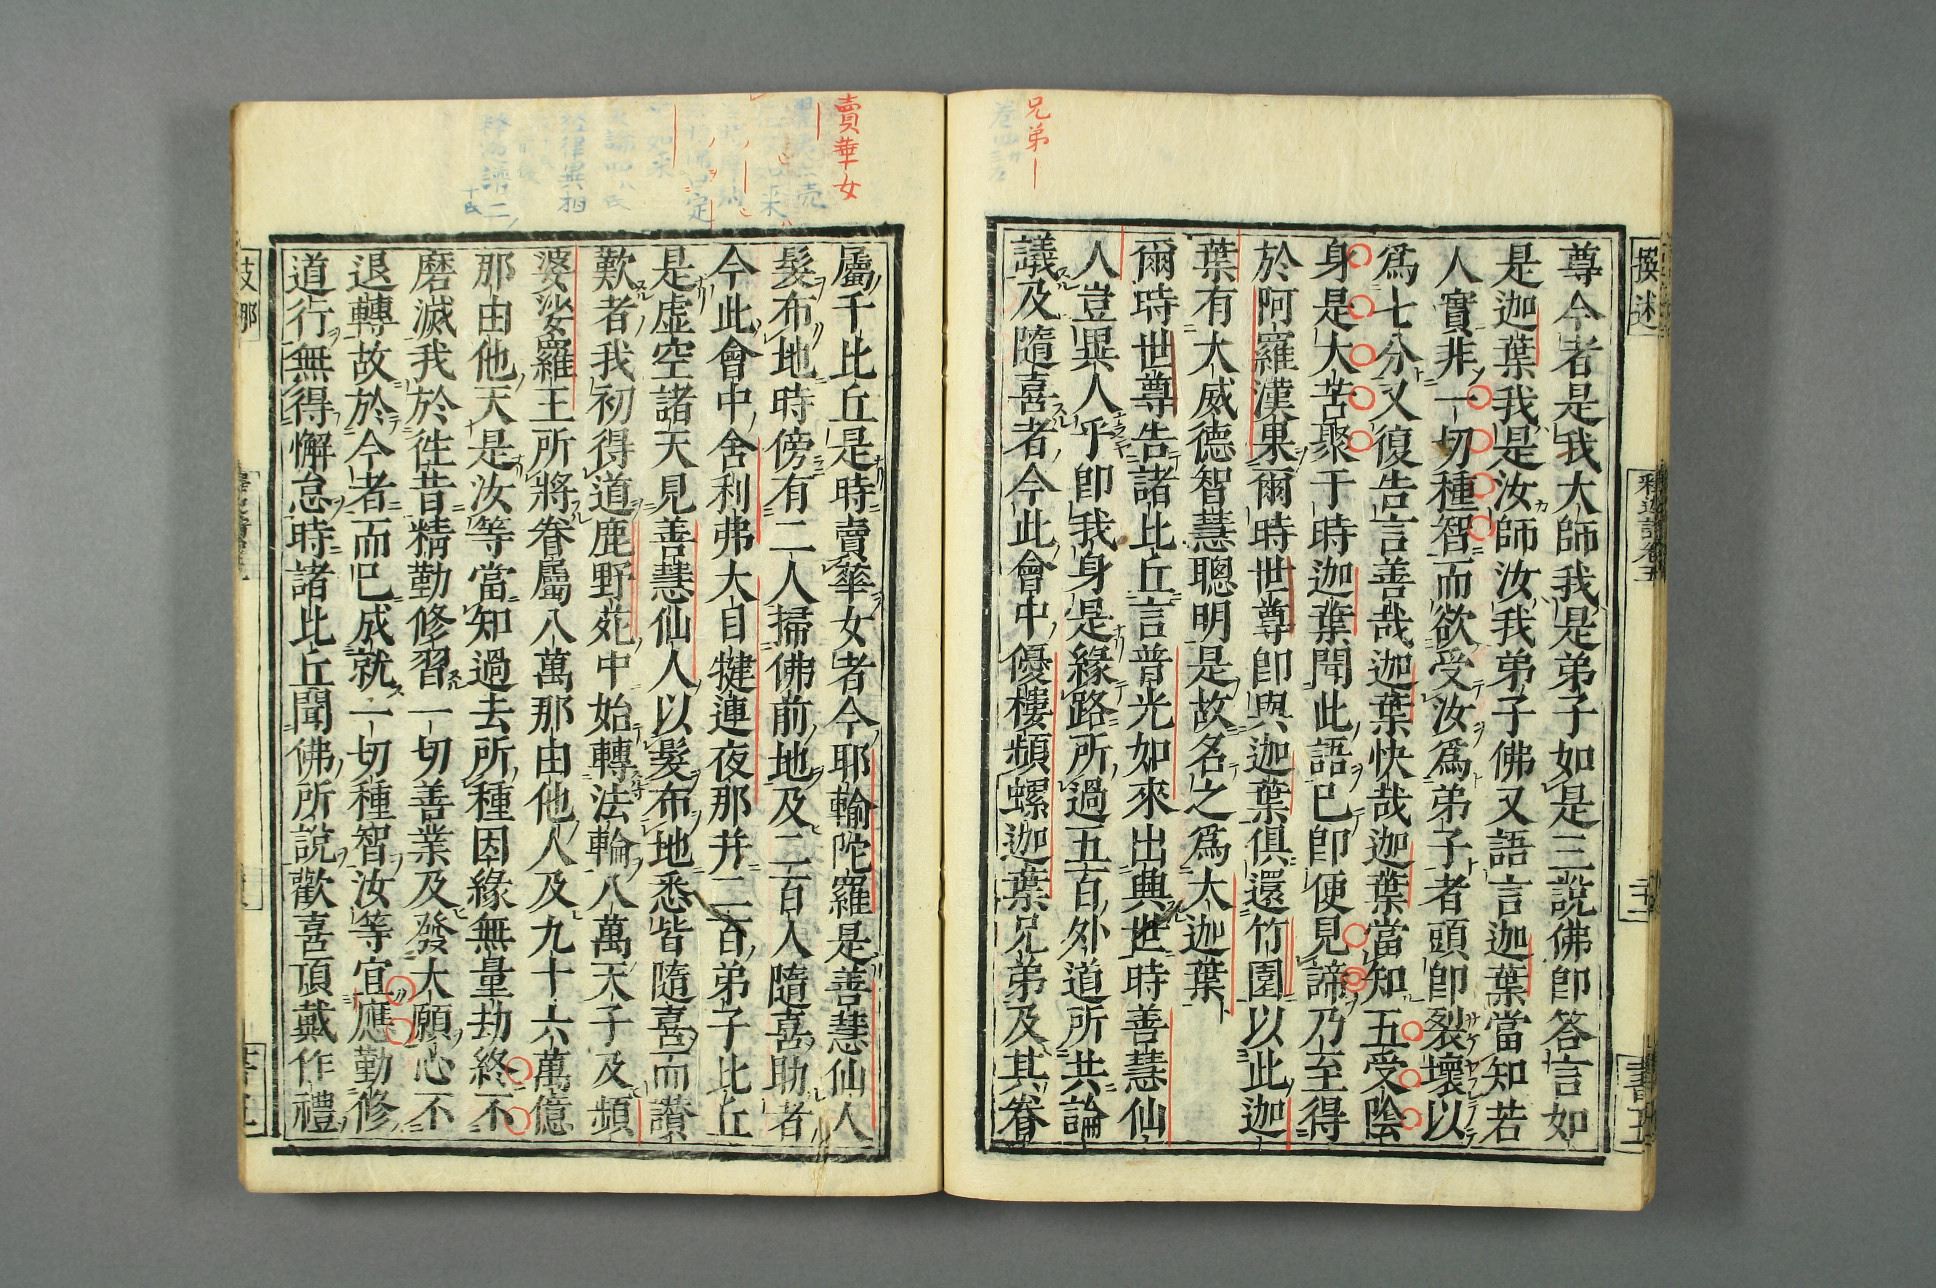 兄弟
尊今者是我大師我是弟子如是三說佛卽答言如
是迦葉我是汝師汝我弟子佛又語言迦葉當知若
人實非一切種智而欲受汝爲弟子者頭卽裂壞以
爲七分又復告言善哉迦葉快哉迦葉當知五受陰
身是大苦聚于時迦葉聞此語已卽便見諦乃至得
於阿羅漢果爾時世尊卽與迦葉俱還竹園以此迦
葉有大威德智慧聰明是故名之爲大迦葉
爾時世尊告諸比丘言普光如來出興世時善慧仙
人豈異人乎卽我身是緣路所過五百外道所共論
議及隨喜者今此會中優樓頻螺迦葉兄弟及其眷
賣華女
屬千比丘是時賣華女者今耶輸陀羅是善慧仙人
髮布地時傍有二人掃佛前地及二百人隨喜助者
今此會中舍利弗大目犍連夜那并二百弟子比丘
是虛空諸天見善慧仙人以髮布地悉皆隨喜而讃
歎者我初得道鹿野苑中始轉法輪八萬天子及頻
婆娑羅王所將眷屬八萬那由他人及九十六萬億
那由他天是汝等當知過去所種因緣無量劫終不
磨滅我於徃昔精勤修習一切善業及發大願心不
退轉故於今者而已成就一切種智汝等宜應勤修
道行無得懈怠時諸比丘聞佛所說歡喜頂戴作禮